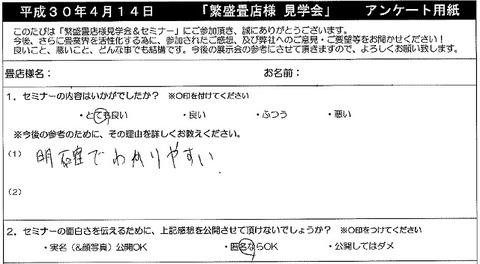 平成３０年４月１４日　「繁盛畳店様 見学会」　アンケート用紙
このたびは「繁盛畳店様見学会&セミナー」にご参加頂き、誠にありがとうございます。
今後、さらに畳業界を活性化する為に、参加されたご感想、及び弊社へのご意見・ご要望等をお聞かせください！
良いこと、悪いこと、どんな事でも結構です。今後の展示会の参考にさせて頂きますので、よろしくお願い致します。
畳店様：　お名前：
１．セミナーの内容はいかがでしたか？　※○印を付けてください
・とても良い　・良い　・ふつう　・悪い
※今後の参考のために、その理由を詳しくお教えください。
(1) 明確でわかりやすい
(2)
２．セミナーの面白さを伝えるために、上記感想を公開させて頂けないでしょうか？　※○印をつけてください
・実名（&顔写真）公開OK　・匿名ならOK　・公開してはダメ